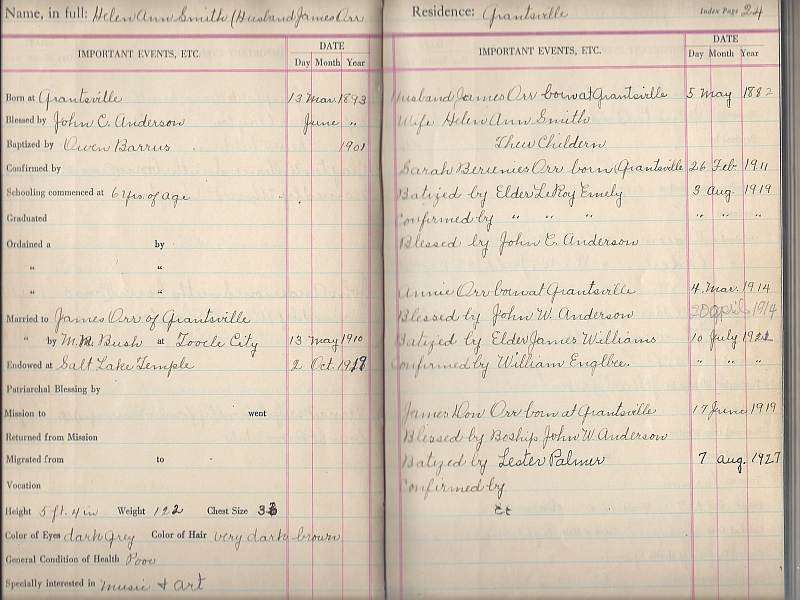 Name, in full: Helen Ann Smith (Husband James Orr
IMPORTANT EVENTS, ETC. DATE
Day Month Year
Born at Grantsville 13 Mar. 1893
Blessed by John C. Anderson June "
Baptized by Owen Barrus 1901
Confirmed by
Schooling commenced at 6 yrs. of age
Graduated
Ordained a by
" "
" "
Married to James Orr of Grantsville
" by M.M. Bush at Tooele City 13 May 1910
Endowed at Salt Lake Temple 2 Oct. 19
Patriarchal Blessing by
Mission to went
Returned from Mission
Migrated from to
Vocation
Height 5 ft. 4 in Weight 122 Chest Size 3
Color of Eyes dark grey Color of Hair very dark brown
General Condition of Health Poor
Specially interested in music + art
Residence: Grantsville Index Page 24
IMPORTANT EVENTS, ETC. DATE
Day Month Year
Husband James Orr born at Grantsville 5 May 1882
Wife Helen Ann Smith
Childern
Sarah Orr born Grantsville 26 Feb 1911
Batized by Elder LeRoy Emely 3 Aug. 1919
Confirmed by " " " " " "
Blessed by John C. Anderson
Annie Orr born at Grantsville 4. Mar. 1914
Blessed by John W. Anderson 20 april 1914
Batized by Elder James Williams 10 July 192
Confirmed by William " " "
James Don Orr born at Grantsville 17 June 1919
Blessed by Boship John W. Anderson
Batized by Lester Palmer 7 aug. 1927
Confirmed by